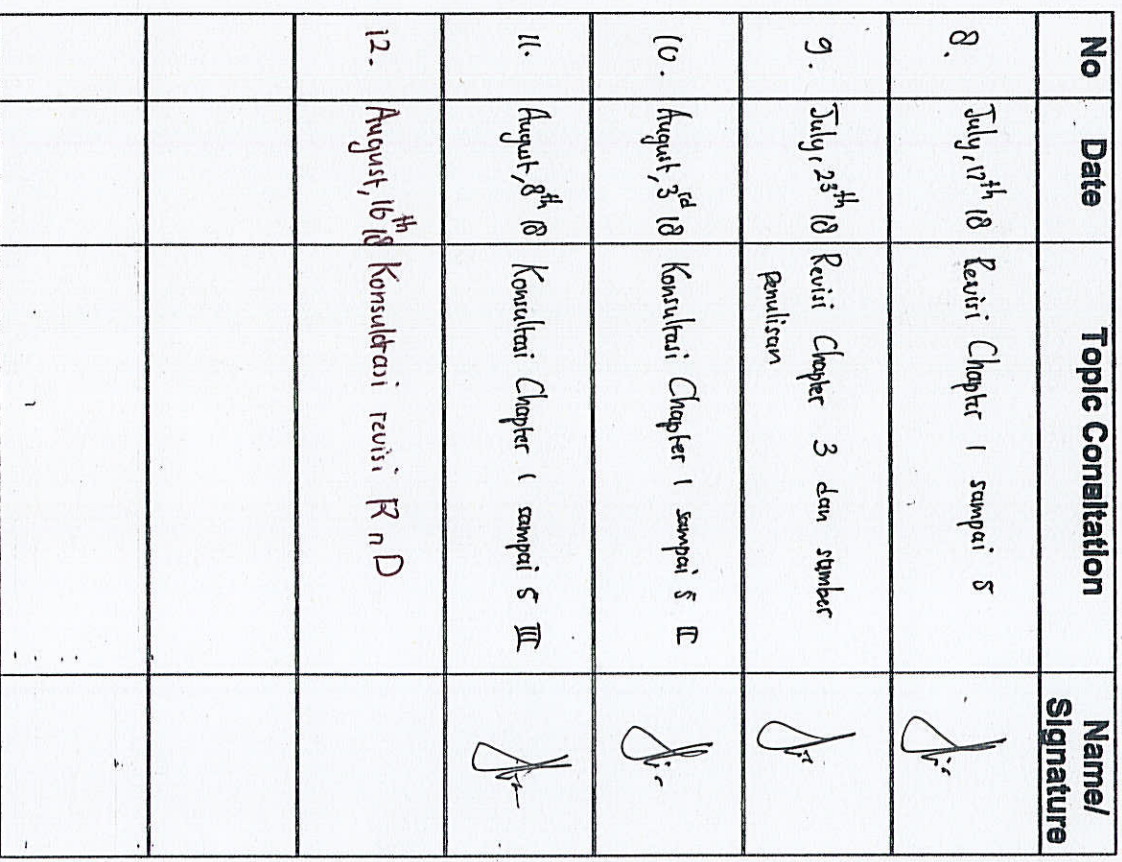 No Date Topic Consltation Name/
Signature
8. July, 17th 18 Revisi Chapter 1 sampai 5
9. July, 23th 18 Revisi Chapter 3 dan sumber
penulisan
10. August, 3rd 18 Konsultasi Chapter 1 sampai 5 II
11. August, 8th 18 Konsultasi Chapter 1 sampai 5 III
12. August, 16th 18 Konsuldtasi revisi R n D